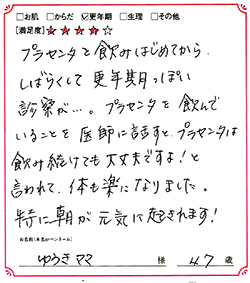 □お肌 □からだ ☑更年期 □生理 □その他
[満足度] ★★★★☆
プラセンタを飲みはじめてから、
しばらくして更年期っぽい
診察が…。プラセンタを飲んで
いることを医師に話すと、プラセンタは
飲み続けても大丈夫ですよ!と
言われて、体も楽になりました。
特に朝が元気に起きれます!
お名前(本名かペンネーム)
ゆうきママ 様 47歳